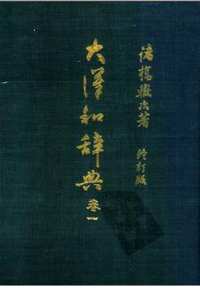 諸橋轍次著
修訂版
大漢和辭典
卷一